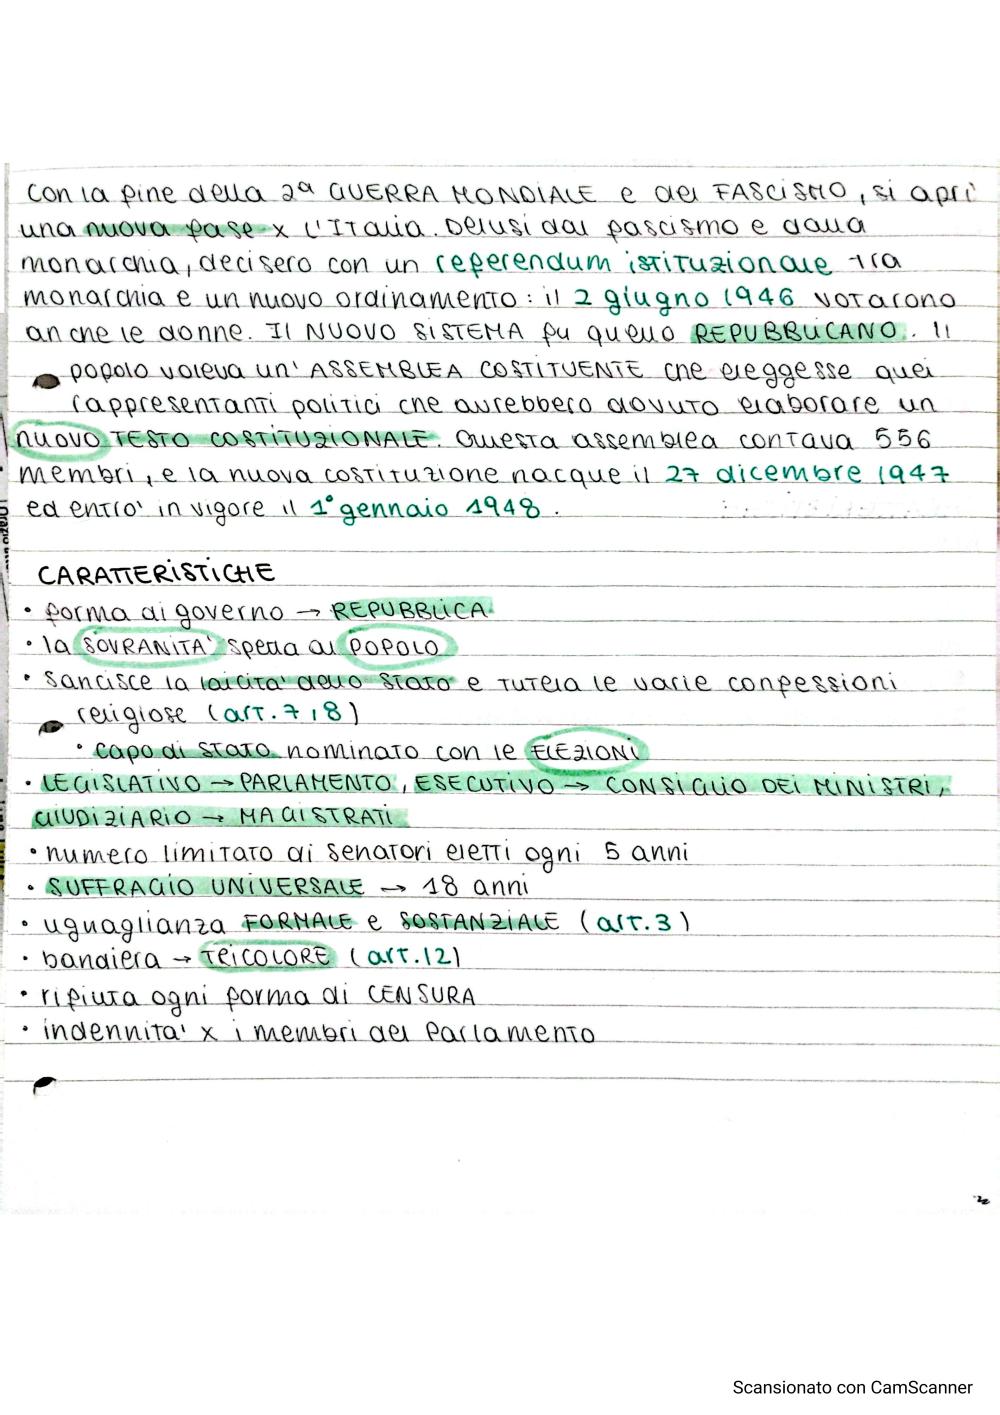 con la fine della 2ª GUERRA MONDIALE e del FASCISMO, si aprì
una nuova fase x l'Italia. Delusi dal fascismo e dalla
monarchia, decisero con un referendum istituzionale tra
monarchia e un nuovo ordinamento: il 2 giugno 1946 votarono
anche le donne. Il NUOVO SISTEMA fu quello REPUBBLICANO. Il
popolo voleva un' ASSEMBLEA COSTITUENTE che eleggesse quei
rappresentanti politici che avrebbero dovuto elaborare un
NUOVO TESTO COSTITUZIONALE. Questa assemblea contava 556
membri, e la nuova costituzione nacque il 27 dicembre 1947
ed entro' in vigore il 1° gennaio 1948.
CARATTERISTICHE
• forma di governo → REPUBBLICA
• la SOVRANITA' spetta al POPOLO
• Sancisce la laicita' dello Stato e tutela le varie confessioni
religiose (art. 7,8)
• capo di Stato nominato con le ELEZIONI
• LEGISLATIVO → PARLAMENTO, ESECUTIVO → CONSIGLIO DEI MINISTRI,
GIUDIZIARIO → MAGISTRATI
• numero limitato di senatori eletti ogni 5 anni
• SUFFRAGIO UNIVERSALE → 18 anni
• uguaglianza FORMALE e SOSTANZIALE (art. 3)
• bandiera → TRICOLORE (art. 12)
• rifiuta ogni forma di CENSURA
• indennita' x i membri del Parlamento
Scansionato con CamScanner